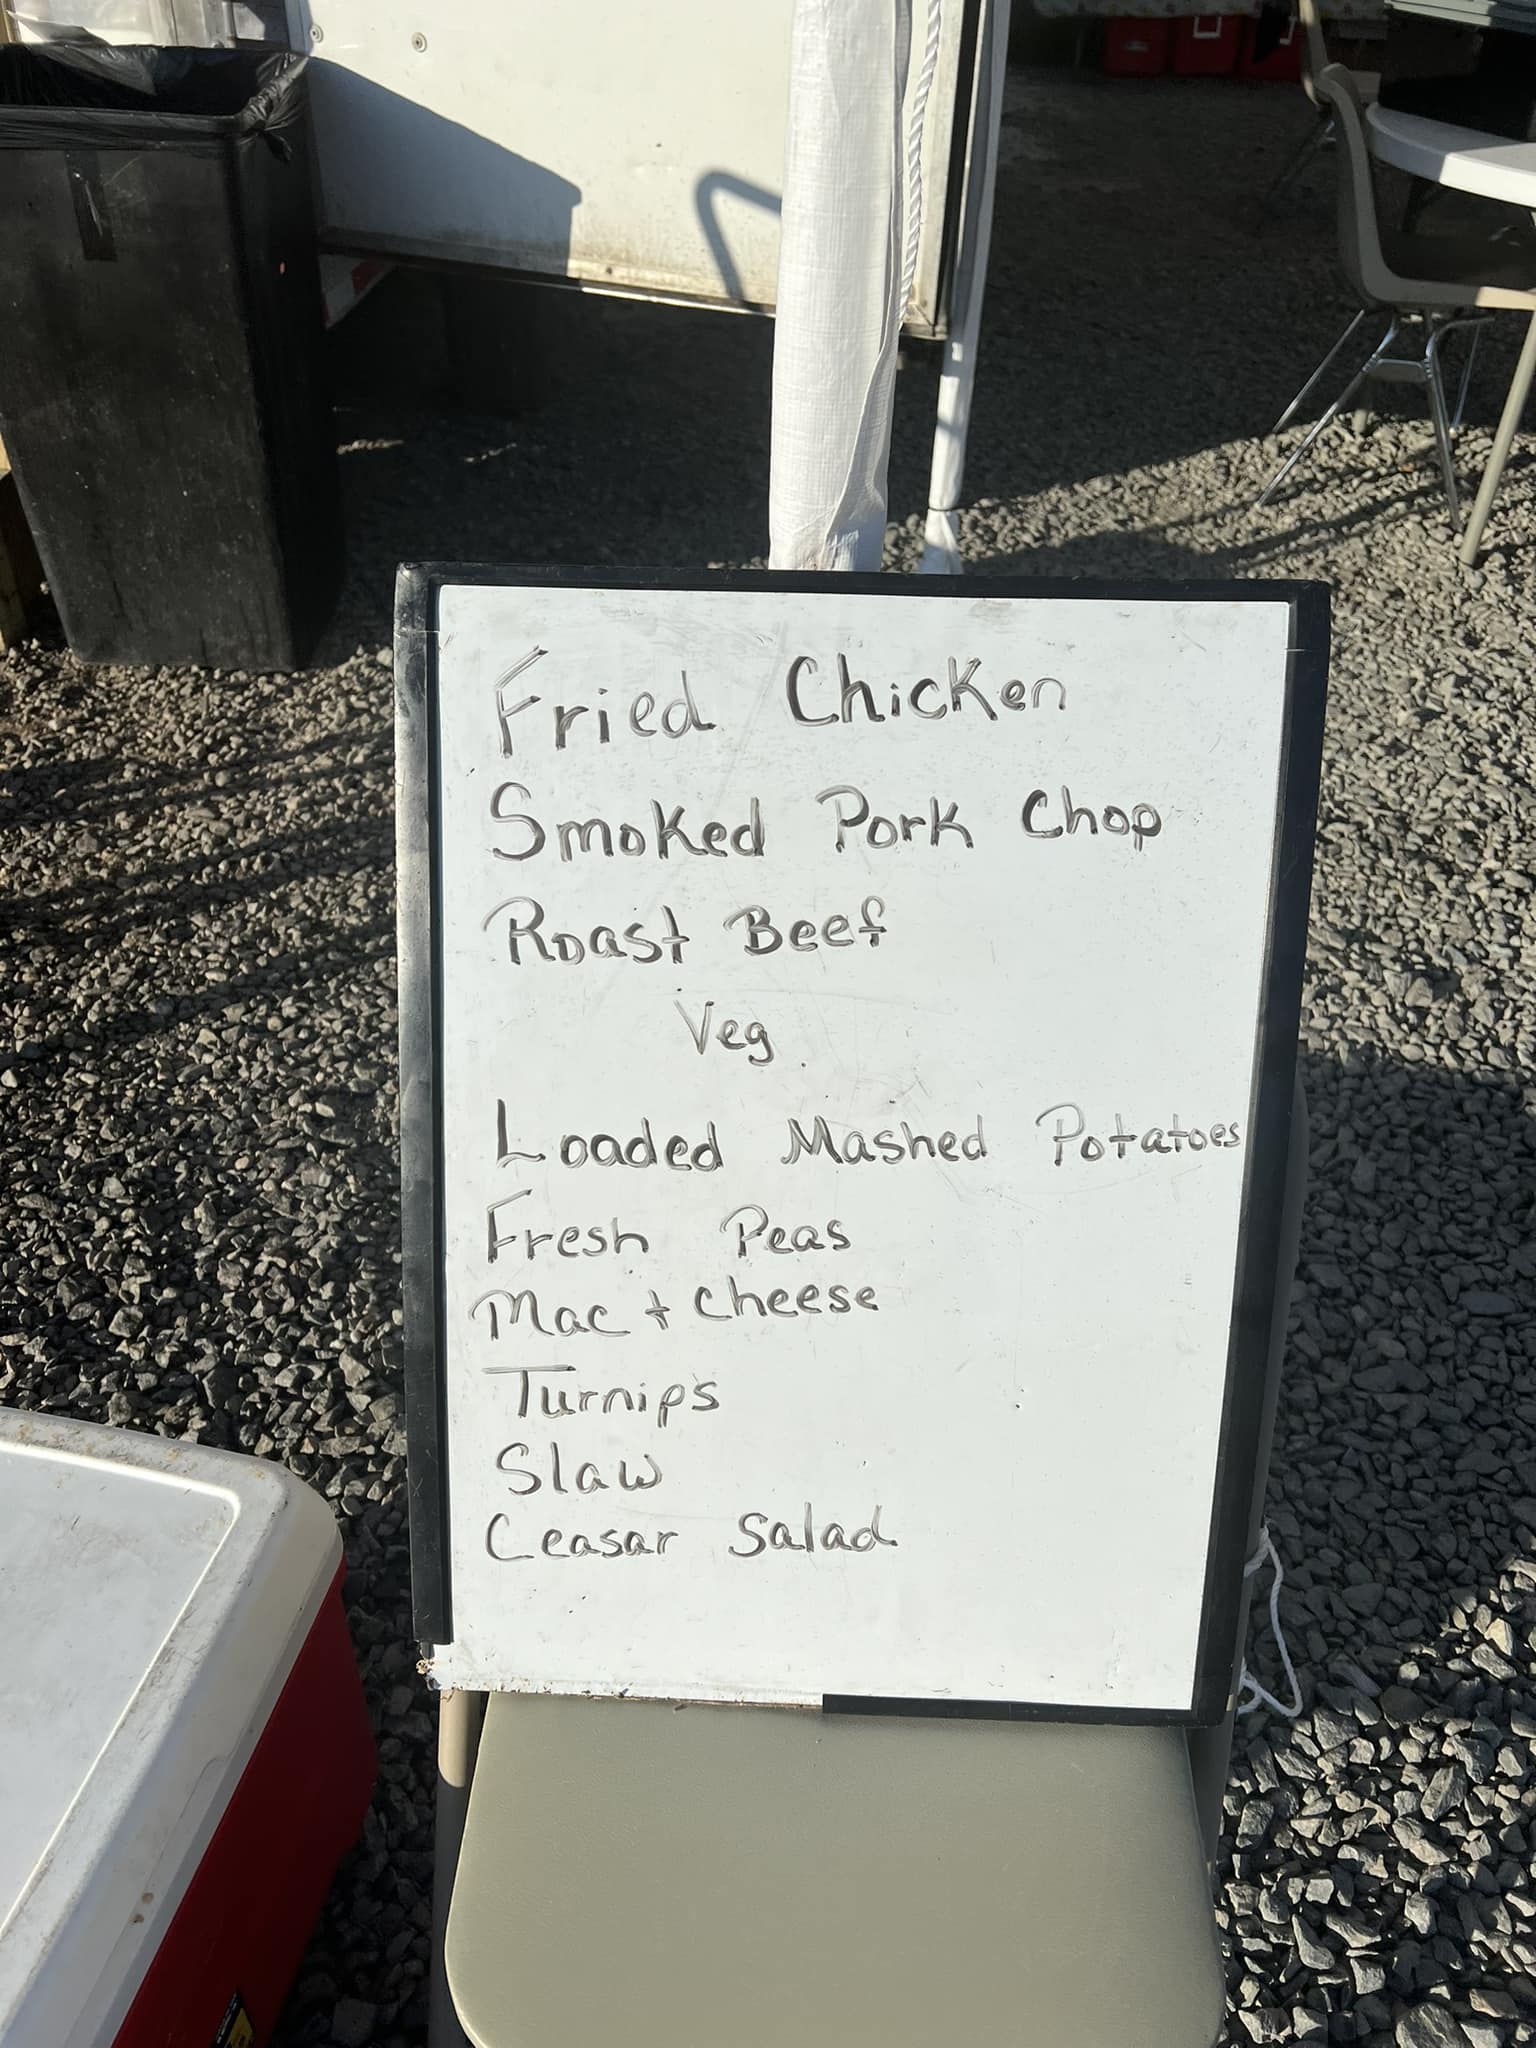 Fried Chicken
Smoked Pork Chop
Roast Beef
Veg
Loaded Mashed Potatoes
Fresh Peas
Mac + Cheese
Turnips
Slaw
Ceasar Salad